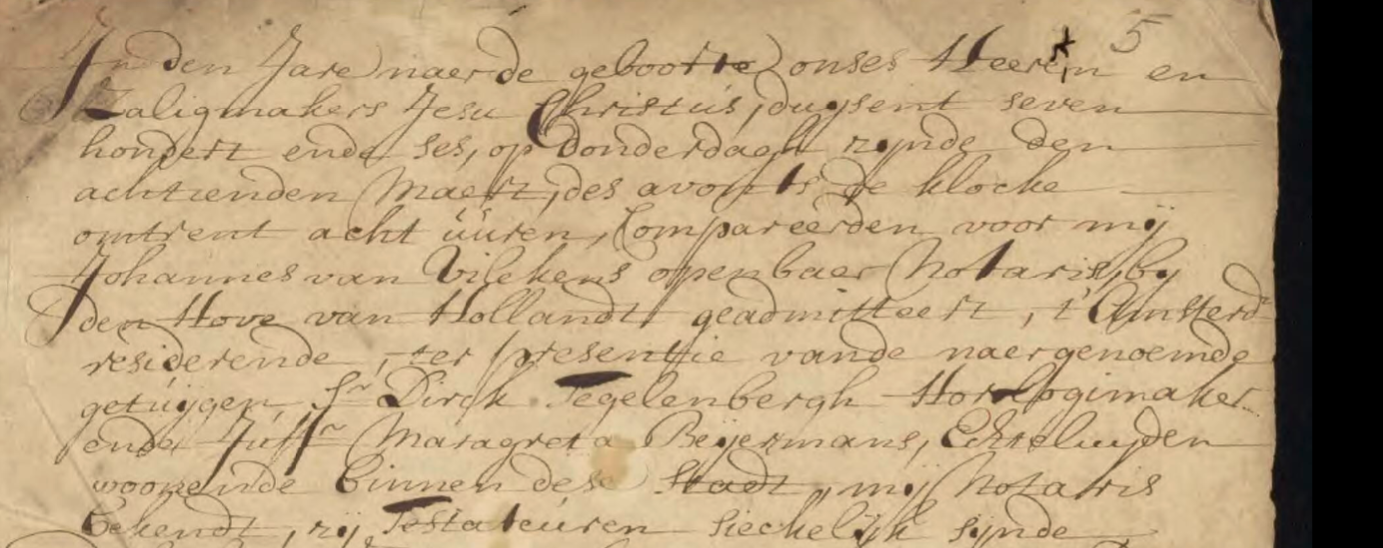 5
In den Jare naer de geboorte onses Heeren en
Zaligmakers Jesu Christus, duysent seven
hondert ende ses, op donderdagh zynde den
achtienden Maert, des avonts de klocke
omtrent acht uuren, Compareerden voor mij
Johannes van Vilekens openbaer Notaris, by
den Hove van Hollandt geadmitteert, t'Amsterd
residerende, ter presentie vande naergenoemde
getuijgen, Sr Dirck Tegelenbergh Horologimaker
ende Juffr Maragreta Beijermans, Echteluijden
woonende binnen dese Stadt, mij Notaris
bekendt, zij Testateuren sieckelijk sijnde